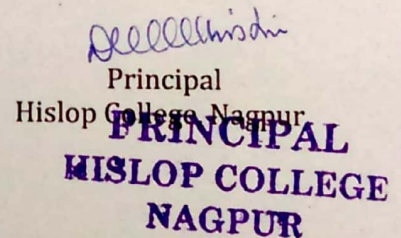 Principal
Hislop College, Nagpur
PRINCIPAL
HISLOP COLLEGE
NAGPUR